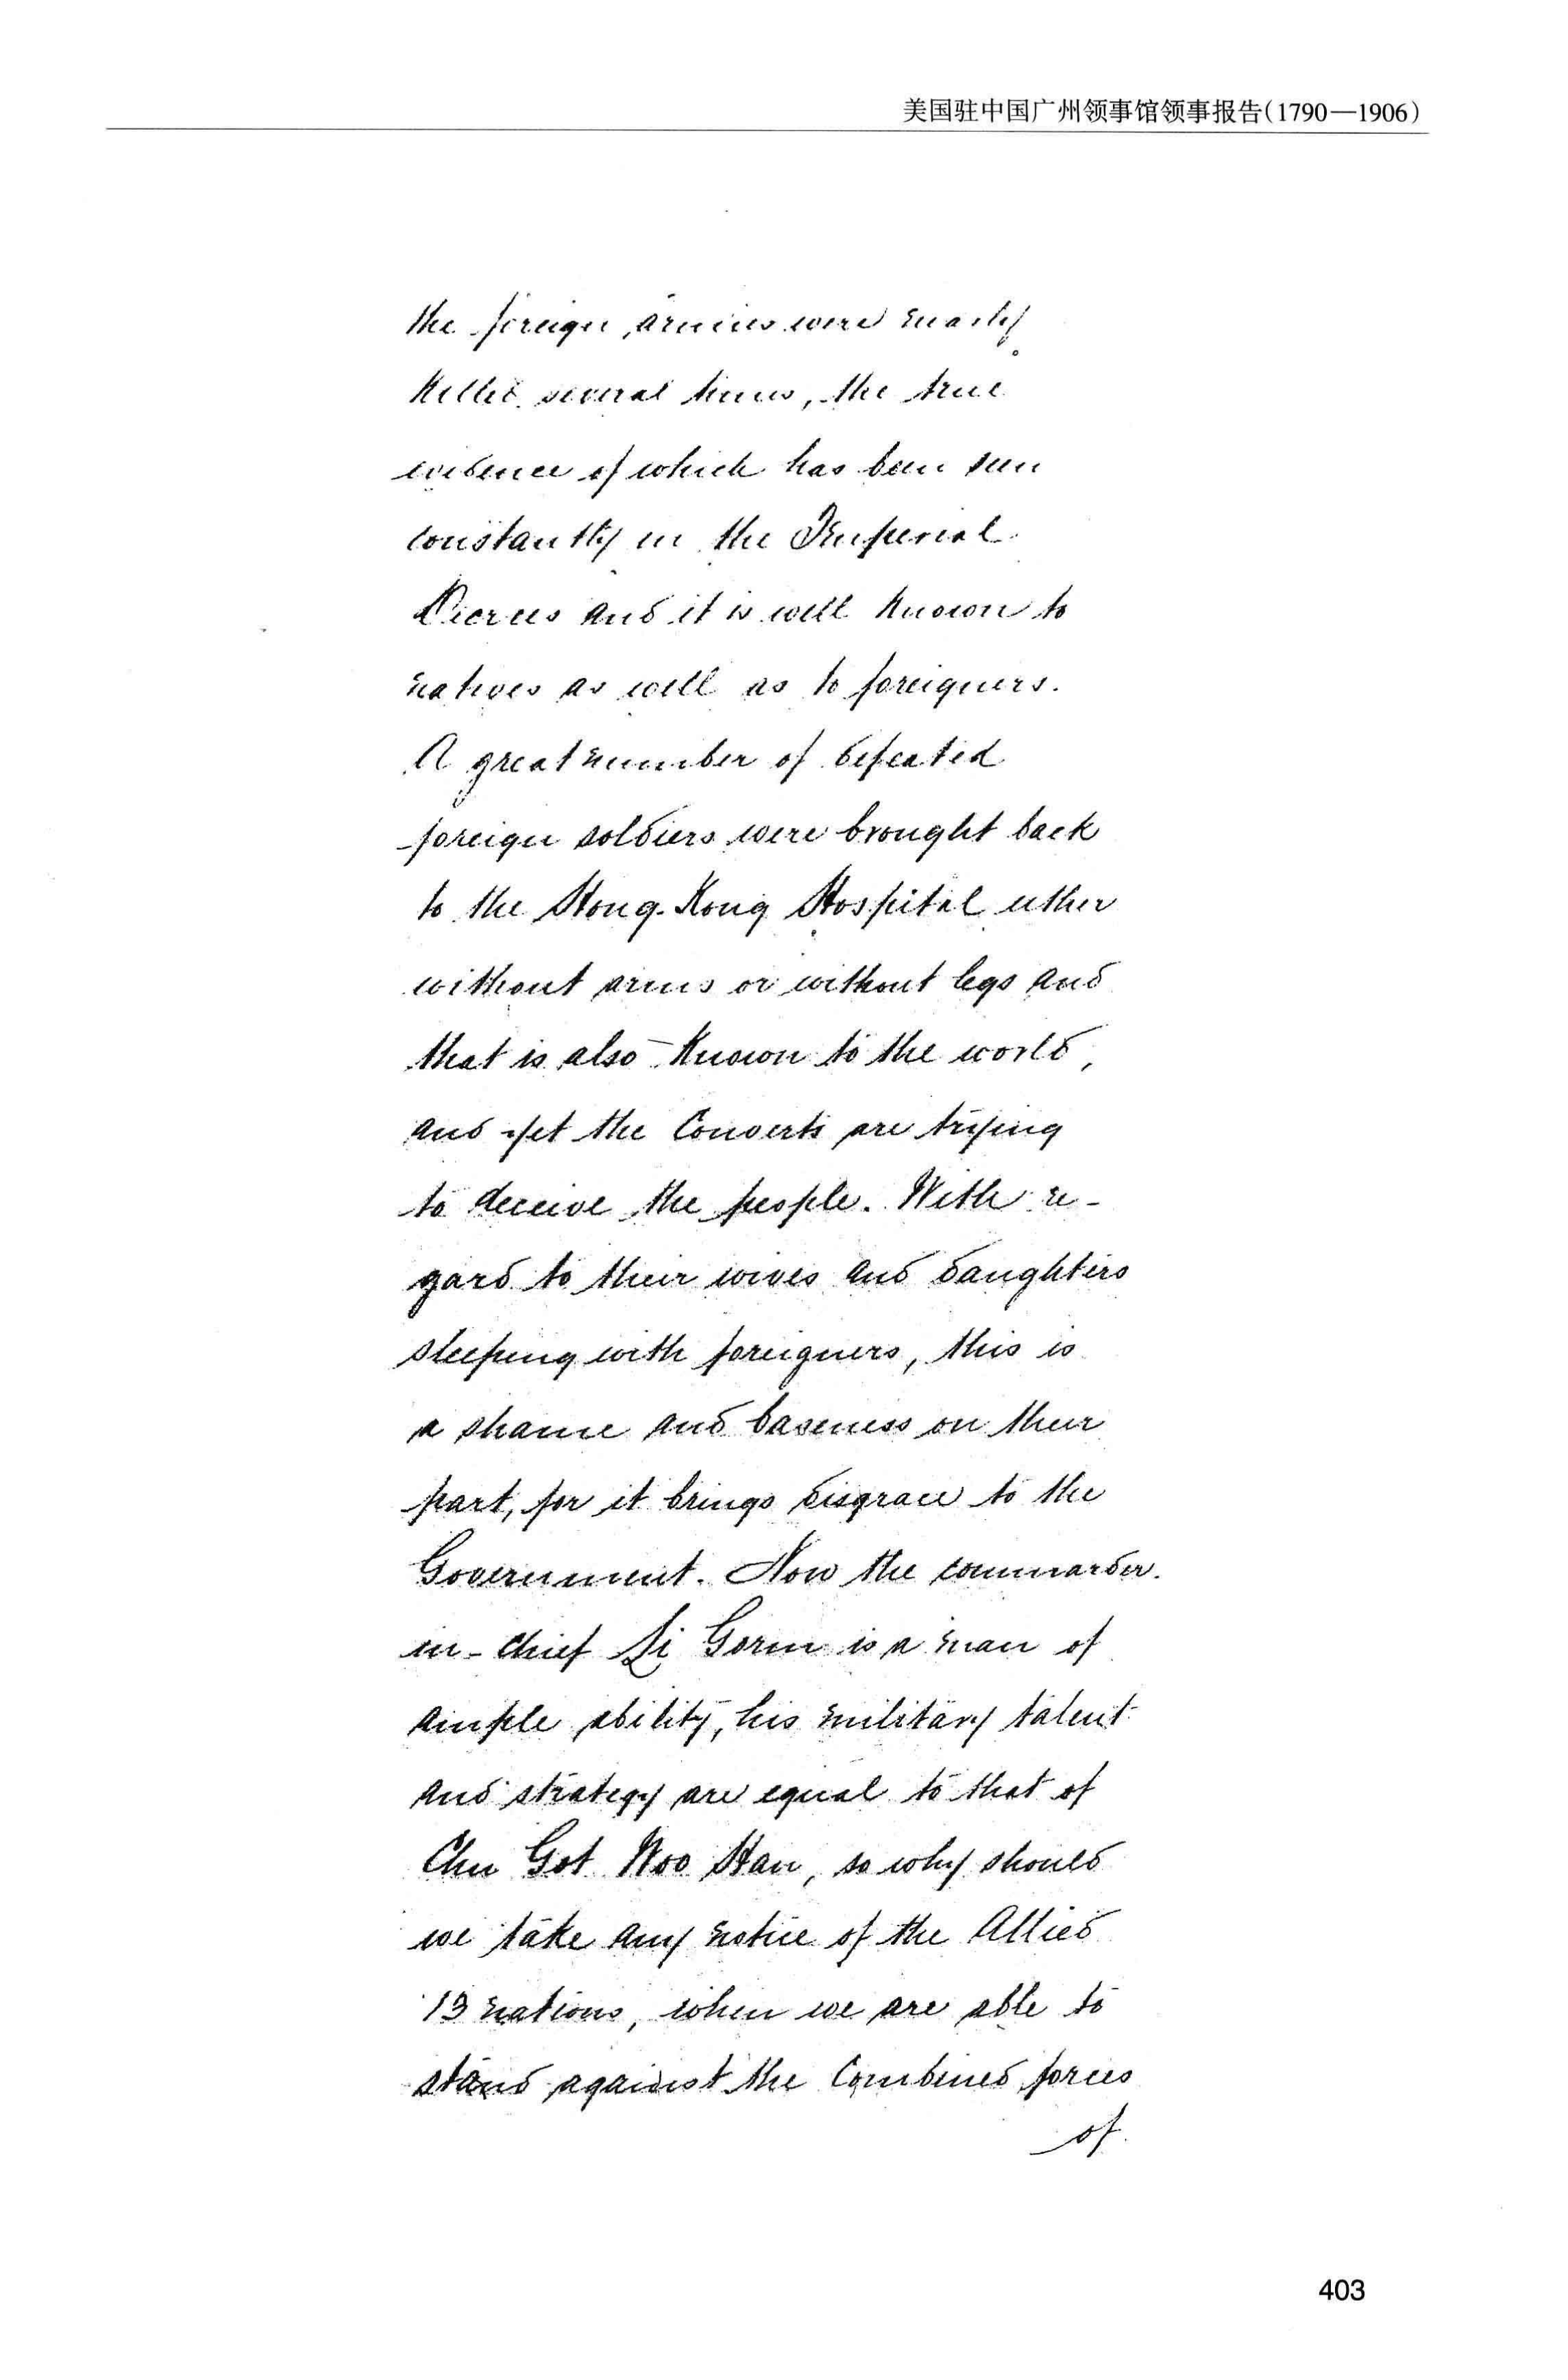 美国驻中国广州领事馆领事报告(1790—1906)
the foreign armies were nearly
killed several times, the true
evidence of which has been seen
constantly in the Imperial
Decrees and it is well known to
natives as well as to foreigners.
A great number of defeated
foreign soldiers were brought back
to the Hong-Kong Hospital either
without arms or without legs and
that is also known to the world,
and yet the Converts are trying
to deceive the people. With re-
gard to their wives and daughters
sleeping with foreigners, this is
a shame and baseness on their
part, for it brings disgrace to the
Government. Now the commander-
in-chief Li Gorm is a man of
ample ability, his military talent
and strategy are equal to that of
Chu Got Woo Han, so why should
we take any notice of the Allied
13 nations, when we are able to
stand against the Combined forces
of
403